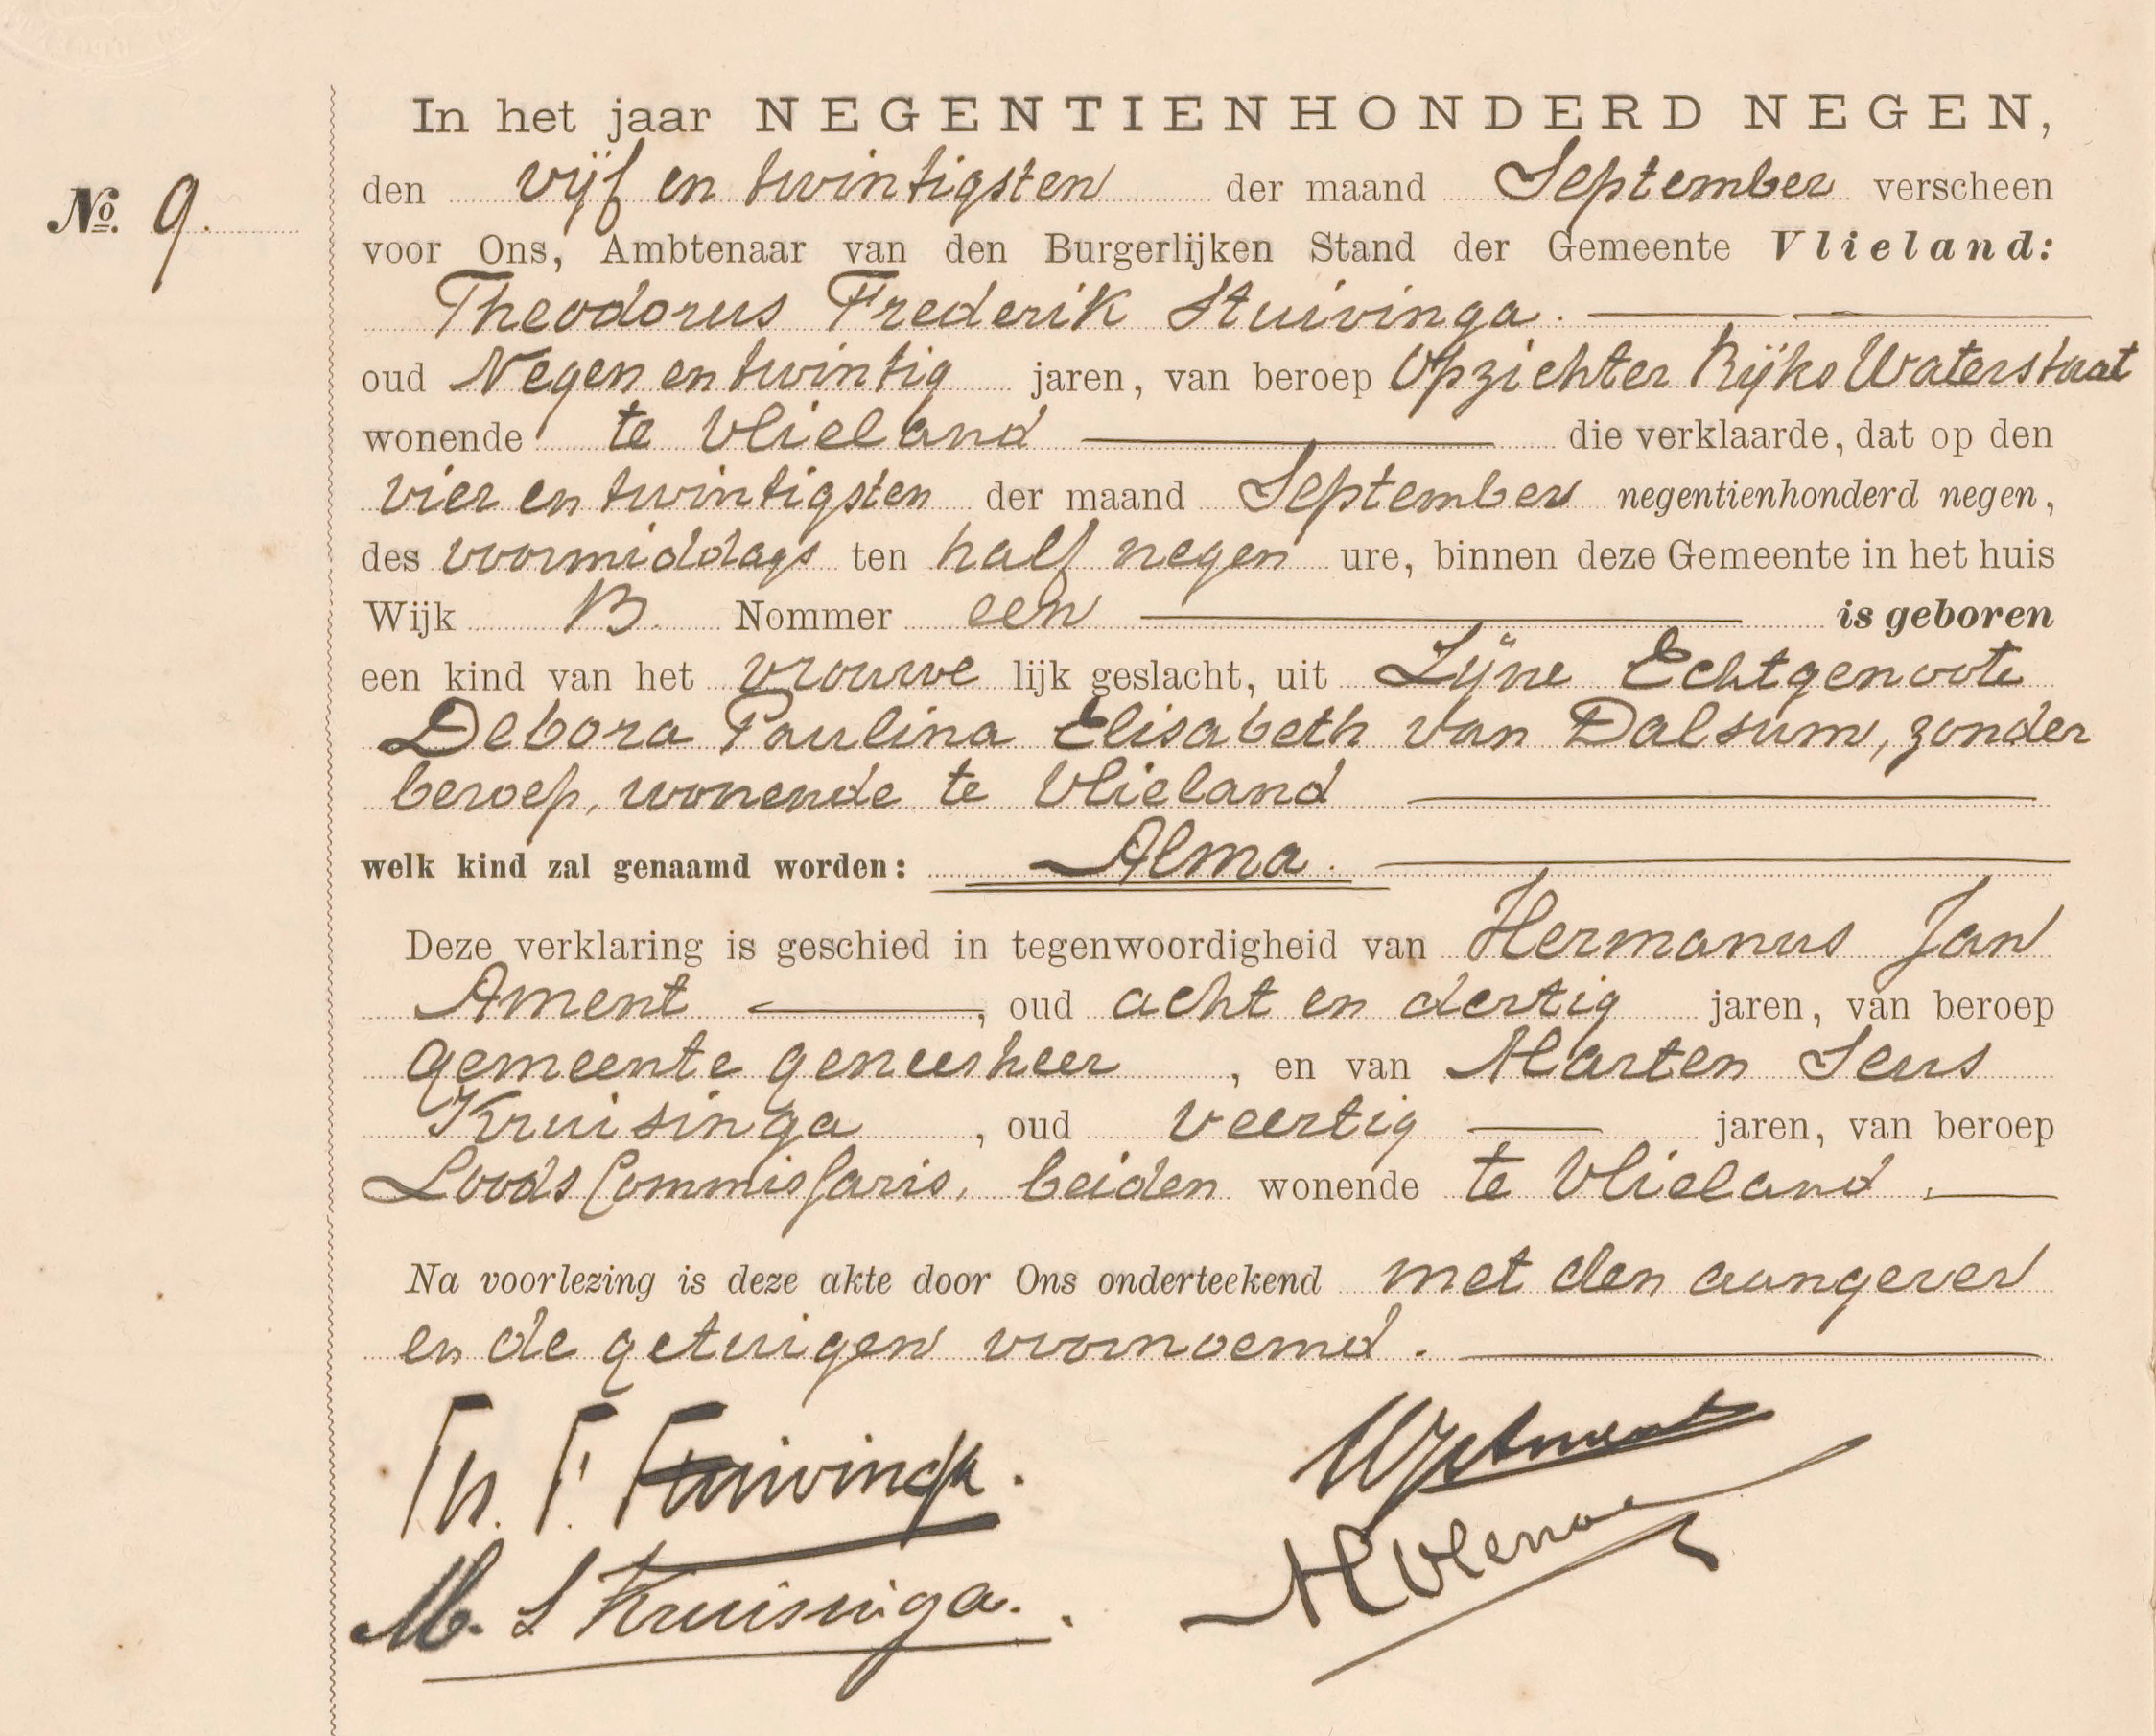 In het jaar NEGENTIENHONDERD NEGEN,
No. 9.
den vijf en twintigsten der maand September verscheen
voor Ons, Ambtenaar van den Burgerlijken Stand der Gemeente Vlieland:
Theodorus Frederik Stuivinga.
oud Negen en twintig jaren, van beroep Opzichter Rijks Waterstaat
wonende te Vlieland die verklaarde, dat op den
vier en twintigsten der maand September negentienhonderd negen,
des voormiddags ten half negen ure, binnen deze Gemeente in het huis
Wijk B. Nommer een is geboren
een kind van het vrouwe lijk geslacht, uit Zijne Echtgenoote
Debora Paulina Elisabeth van Dalsum, zonder
beroep, wonende te Vlieland
welk kind zal genaamd worden: Alma.
Deze verklaring is geschied in tegenwoordigheid van Hermanus Jan
Ament, oud acht en dertig jaren, van beroep
gemeente geneesheer, en van Marten Seus
Kruisinga, oud veertig jaren, van beroep
Loods Commissaris, beiden wonende te Vlieland.
Na voorlezing is deze akte door Ons onderteekend met den aangever
en de getuigen voornoemd.
Th. F. Stuivinga. HJAment
M. S Kruisinga.